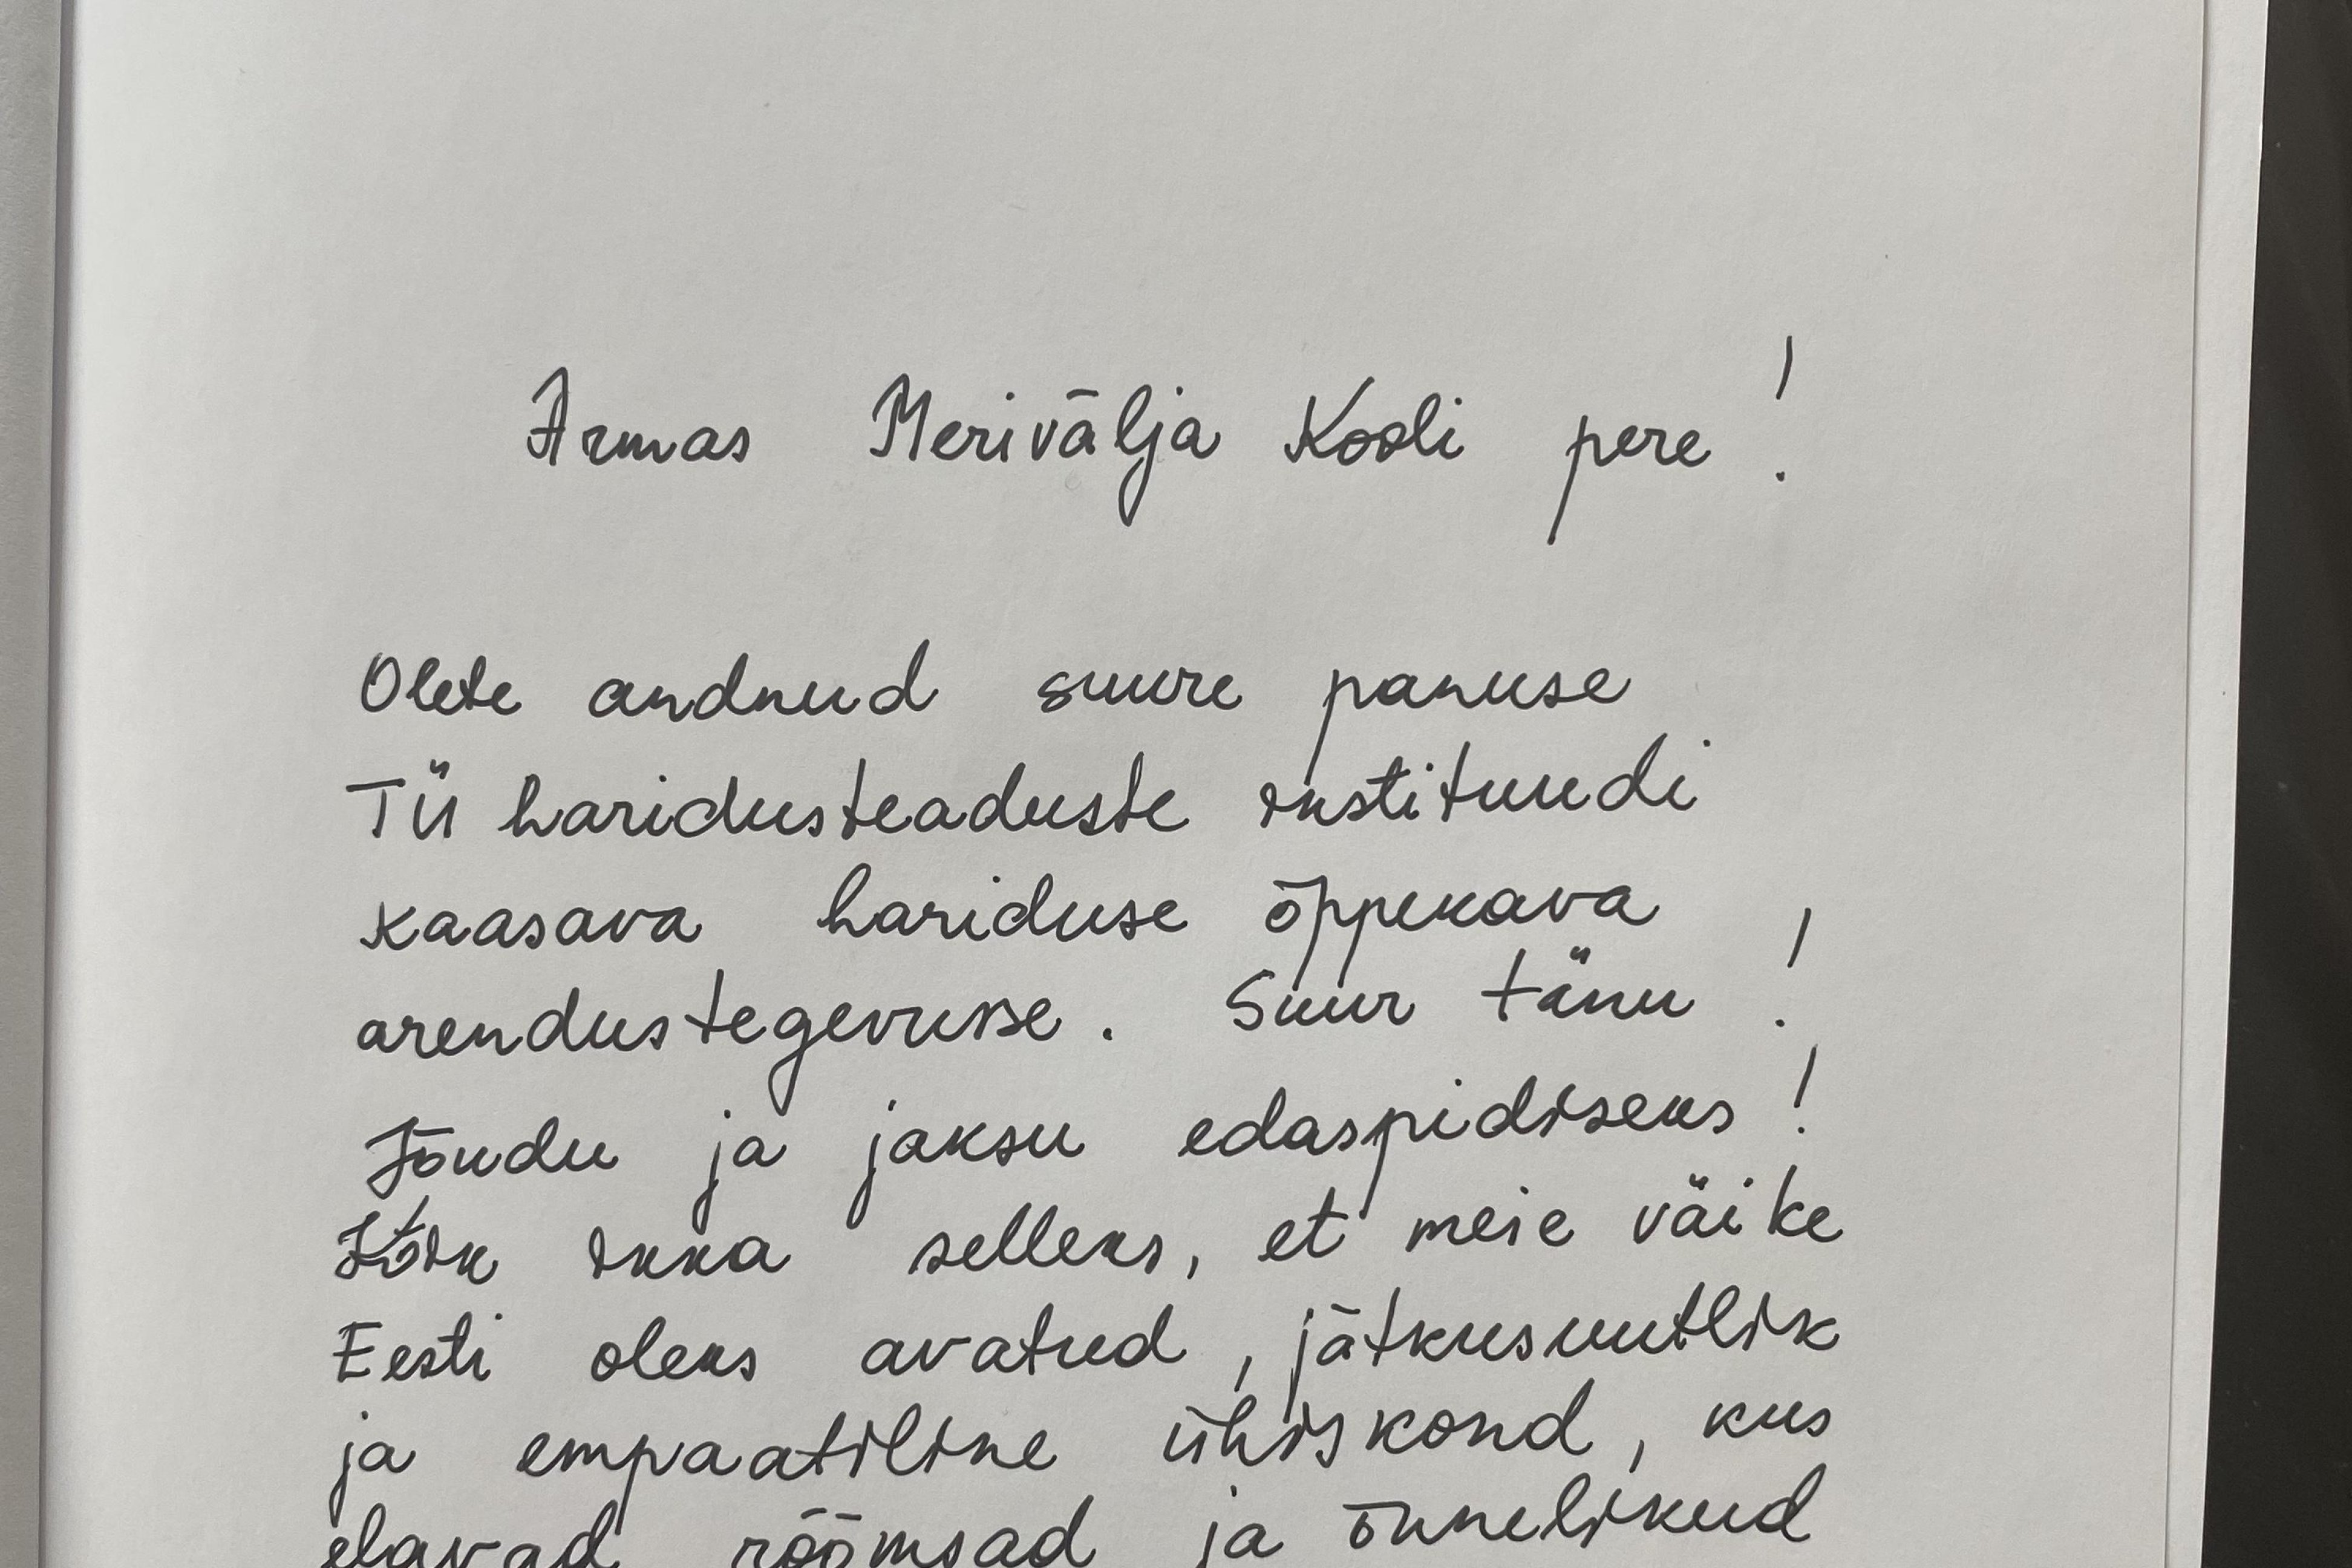 Armas Merivälja Kooli pere!
Olete andnud suure panuse
TÜ haridusteaduste instituudi
kaasava hariduse õppekava
arendustegevusse. Suur tänu!
Jõudu ja jaksu edaspidiseks!
Kõik ikka selleks, et meie väike
Eesti oleks avatud, jätkusuutlik
ja empaatiline ühiskond, kus
elavad rõõmsad ja õnnelikud